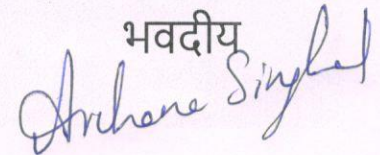 भवदीय
Archana Singhal